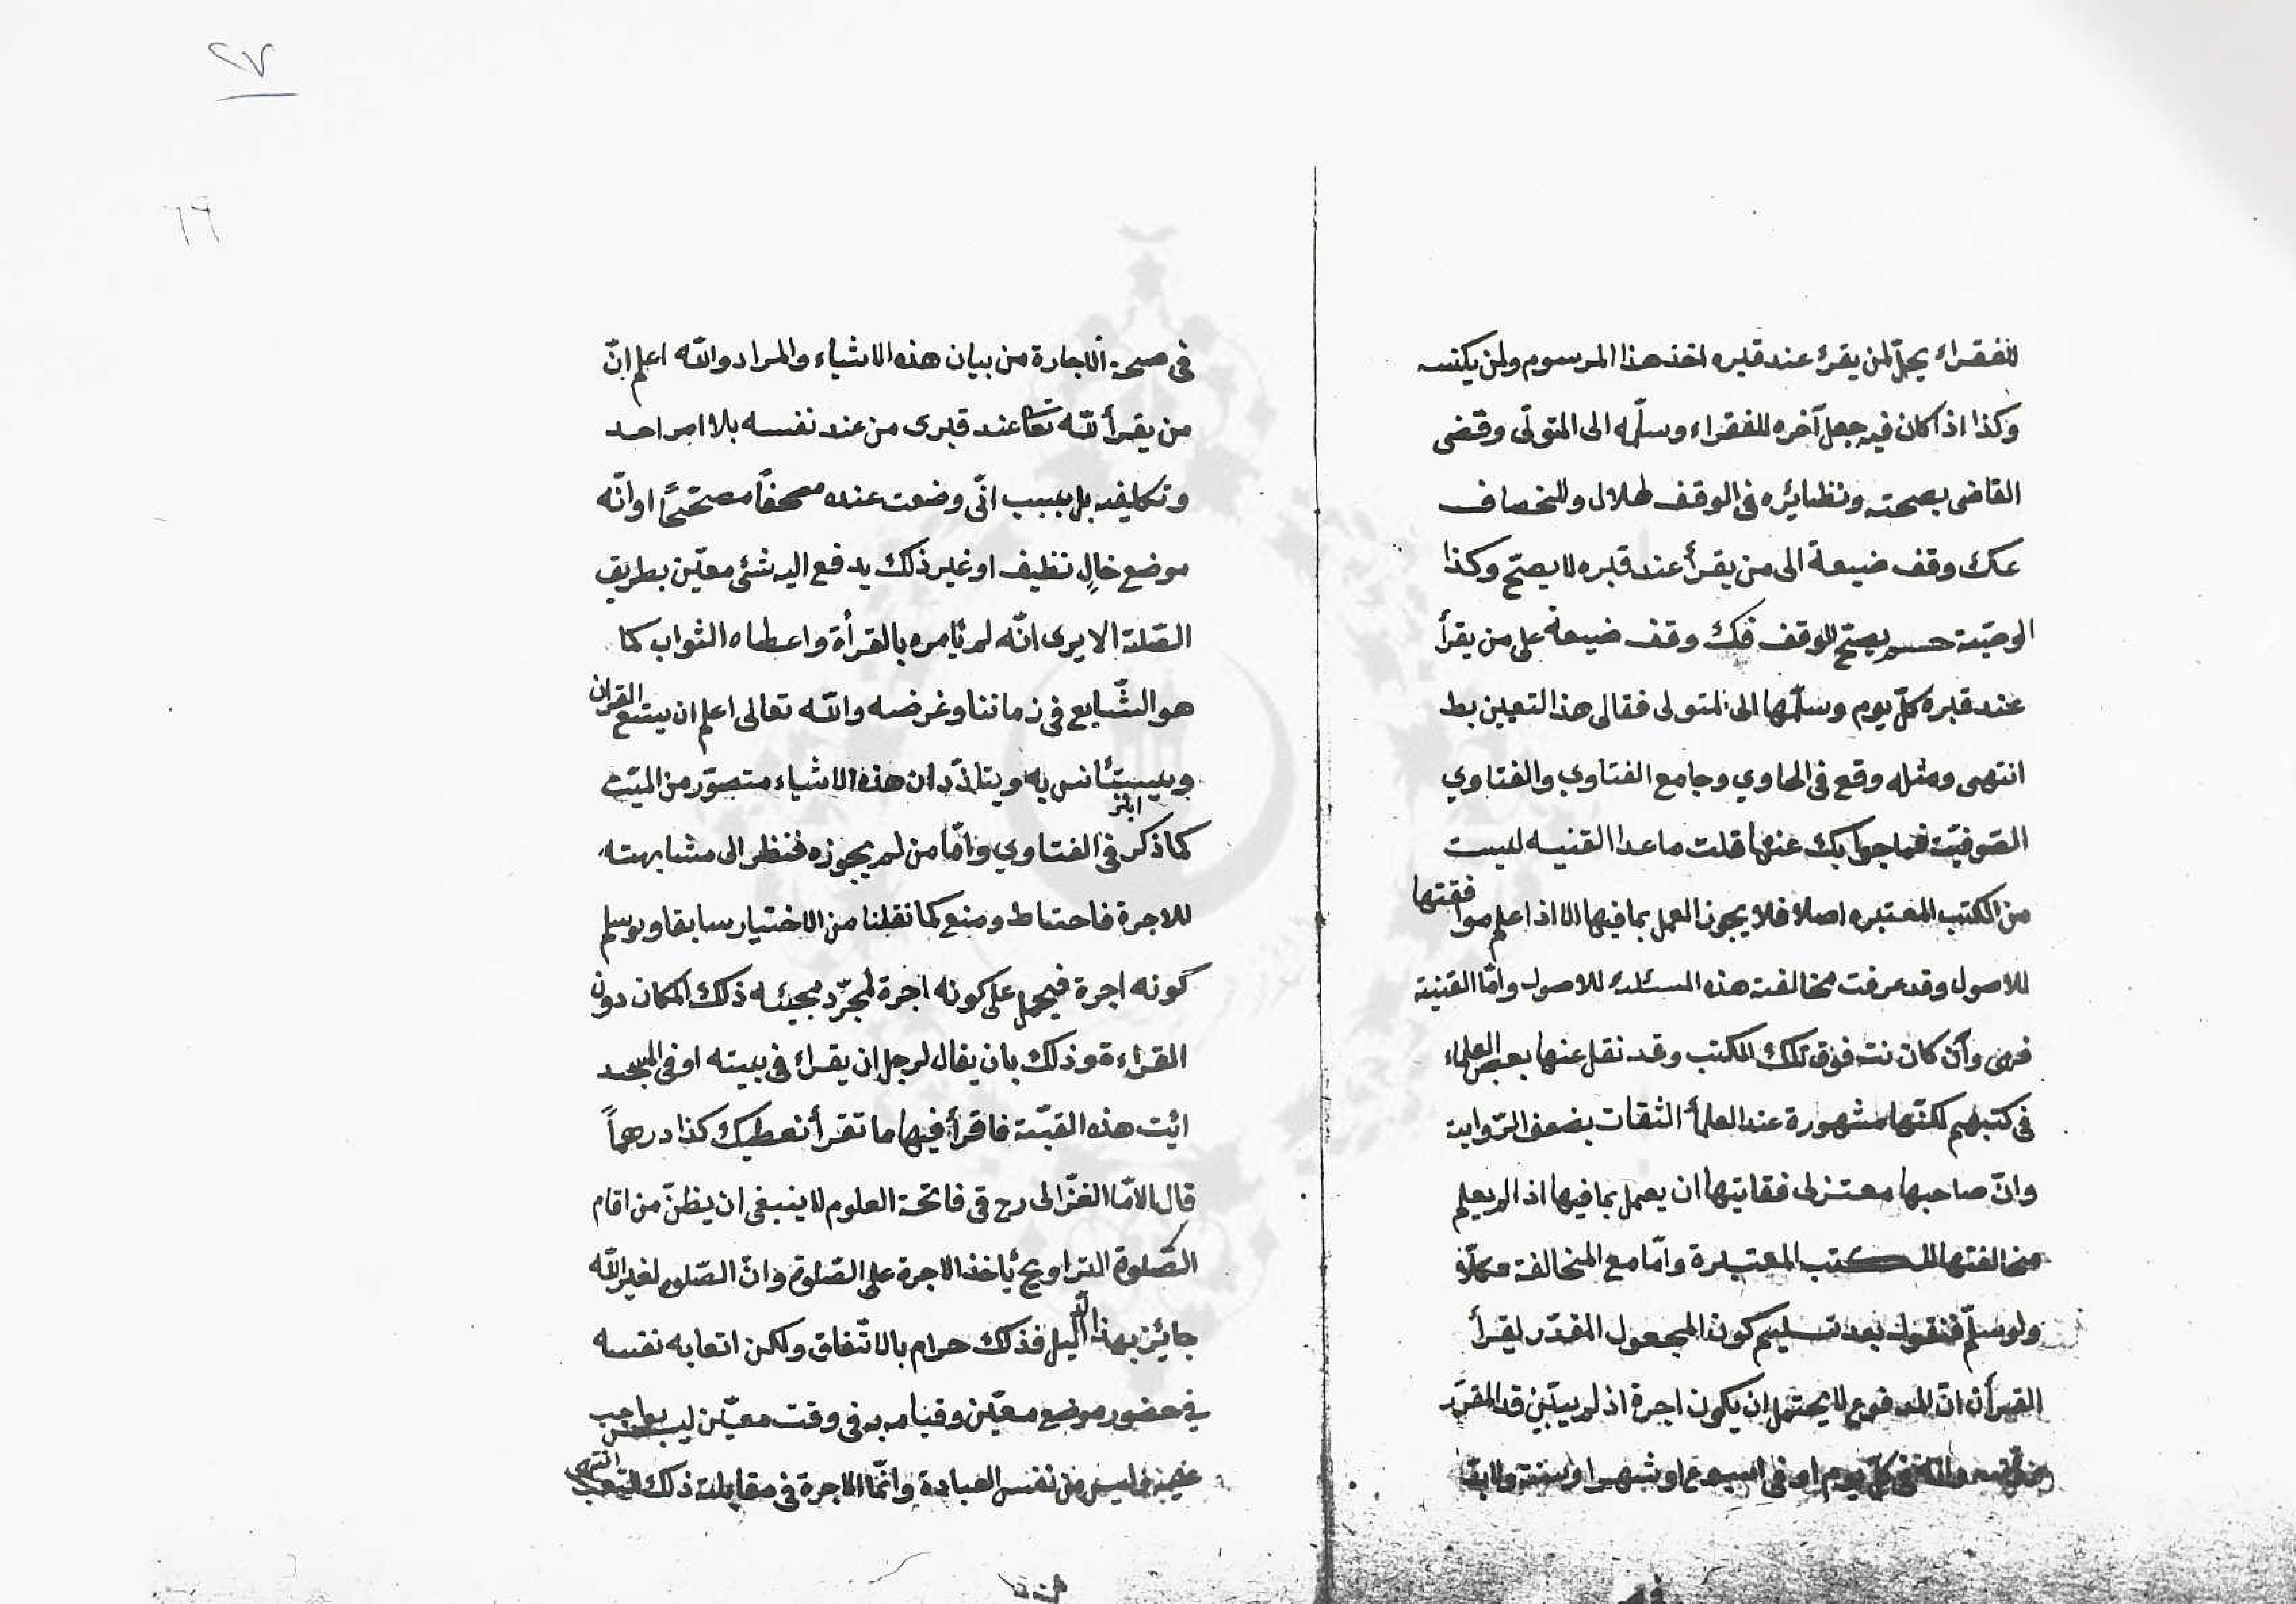 للفقراء يحلّ لمن يقرء عند قبره اخذ هذا المرسوم ولمن يكنسه
وكذا اذا كان فيه جعل آخره للفقراء وسلّمه الى المتولّى وقضى
القاضى بصحته ونظائره فى الوقف لهلال وللخصاف
عك وقف ضيعة الى من يقرأ عند قبره لا يصحّ وكذا
الوصيّة يصحّ للوقف فك وقف ضيعة على من يقرأ
عند قبره كلّ يوم وسلّمها الى المتولى فقالى هذا التعيين بط
انتهى ومثله وقع فى الحاوي وجامع الفتاوي والفتاوي
الصّوفيّة فما جوابك عنها قلت ما عدا القنيه ليست
من الكتب المعتبره اصلا فلا يجوز العمل بما فيها الا اذا علم موافقتها
للاصول وقد عرفت مخالفة هذه المسئلة للاصول وامّا القنية
فهى وان كانت فوق تلك الكتب وقد نقل عنها بعض العلماء
فى كتبهم لكنّها مشهورة عند العلمأ الثقات بضعف الرّواية
وانّ صاحبها معتزلى فغايتها ان يعمل بما فيها اذا لم يعلم
مخالفتها للكتب المعتبرة وامّا مع المخالفة فكلّا
ولو سلّم فنقول بعد تسليم كون المجعول المقدّر ليقرأ
القرأن انّ المدفوع لا يحتمل ان يكون اجرة اذ لم يبيّن قدر المقرر
كلّ يوم او فى اسبوع او شهر او سنة ولا بدّ
٢٧
٦٩
فى صحة الاجارة من بيان هذه الاشياء والمراد والله اعلم انّ
من يقرأ لله تعا عند قبرى من عند نفسه بلا امر احد
وتكليفه بل بسبب انّى وضعت عنده مصحفاً مصحّحاً او انّه
موضع خالٍ نظيف او غير ذلك يدفع اليه شئ معيّن بطريق
الصّلة الا يرى انّه لم يأمره بالقرأة واعطاه الثواب كما
هو الشّايع فى زماننا وغرضه والله تعالى اعلم ان يستمع القران
ويستأنس به ويتلذّذ ان هذه الاشياء متصوّر من الميّت
كما ذكر فى الفتاوي وامّا من لم يجوزه فنظر الى مشابهته
للاجرة فاحتاط ومنع كما نقلنا من الاختيار سابقا ولو سلم
كونه اجرة فيحمل على كونه اجرة لمجرّد مجيئه ذلك المكان دون
القراءة وذلك بان يقال لرجل ان يقراء فى بيته او فى المسجد
ائت هذه القبّة فاقرأ فيها ما تقرأ نعطيك كذا درهماً
قال الامّا الغزّالى رح فى فاتحة العلوم لا ينبغى ان يظنّ من اقام
الصّلوة التراويح يأخذ الاجرة على الصّلوة وانّ الصّلوة لغير الله
جائز بهذا الليل فذلك حرام بالاتّفاق ولكن اتعابه نفسه
فى حضور موضع معيّن وقيامه به فى وقت معيّن ليس بواجب
عليه وليس من نفس العبادة وانّما الاجرة فى مقابلة ذلك التّعب انتهى